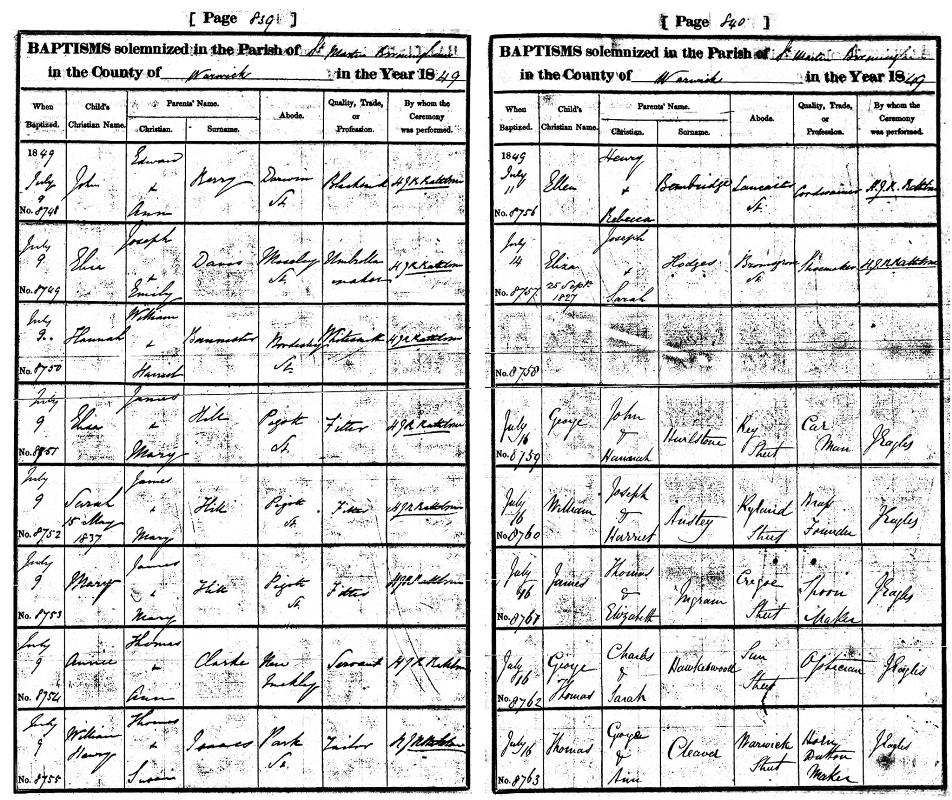 [ Page 839 ]
BAPTISMS solemnized in the Parish of St Martin Birmingham
in the County of Warwick in the Year 1849
When Baptized. Child's Christian Name. Parents' Name. Christian. Surname. Abode. Quality, Trade, or Profession. By whom the Ceremony was performed.
1849 July 9 No. 8748 John Edward & Ann St.
July 9 No. 8749 Elisa Joseph & Emily Davis Moseley St. Umbrella maker
July 9 No. 8750 Hannah William & Harriet Bannister Bordesley St.
July 9 No. 8751 Elisa James & Mary Hill Pigott St. Fitter
July 9 No. 8752 Sarah 15 May 1837 James & Mary Hill Pigott St. Fitter
July 9 No. 8753 Mary James & Mary Hill Pigott St. Fitter
July 9 No. 8754 Annie Thomas & Ann Clarke Servant
July 9 No. 8755 William Henry Thomas & Susan Isaacs Park St. Tailor
[ Page 840 ]
BAPTISMS solemnized in the Parish of St Martin Birmingham
in the County of Warwick in the Year 1849
When Baptized. Child's Christian Name. Parents' Name. Christian. Surname. Abode. Quality, Trade, or Profession. By whom the Ceremony was performed.
1849 July 11 No. 8756 Ellen Henry & Rebecca Bembridge Lancaster St. Cordwainer
July 14 No. 8757 Eliza 25 Sept 1827 Joseph & Sarah Hodges Bromsgrove St. Shoemaker
No. 8758
July 16 No. 8759 George John & Hannah Hurlstone Rey Street Car Man J Eagles
July 16 No. 8760 William Joseph & Harriet Anstey Ryland Street Brass Founder J Eagles
July 16 No. 8761 James Thomas & Elizabeth Ingram Cregoe Street Spoon Maker J Eagles
July 16 No. 8762 George Thomas Charles & Sarah Hawkeswood Sun Street Optician J Eagles
July 16 No. 8763 Thomas George & Ann Cleaver Warwick Street Horn Button Maker J Eagles